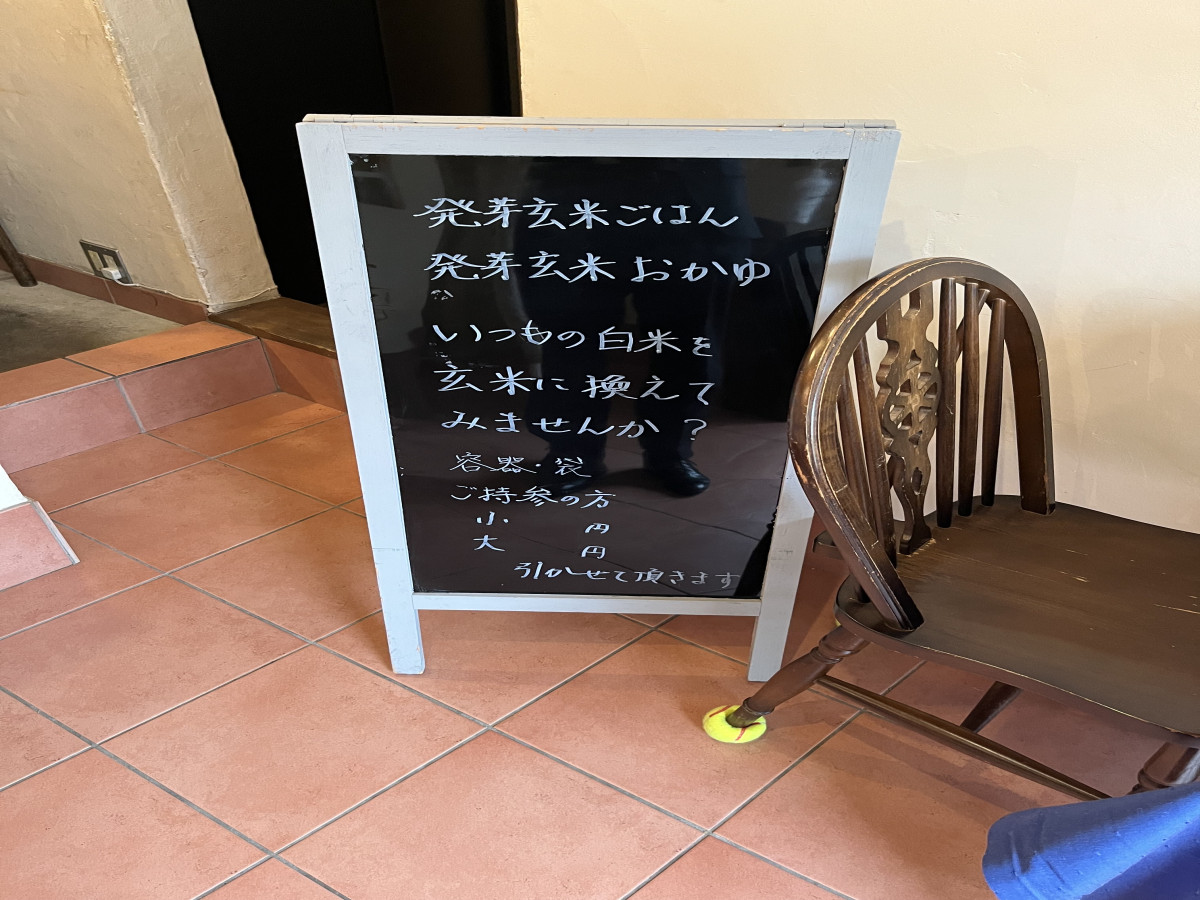 発芽玄米ごはん
発芽玄米おかゆ
いつもの白米を
玄米に換えて
みませんか?
容器・袋
ご持参の方
小 円
大 円
引かせて頂きます